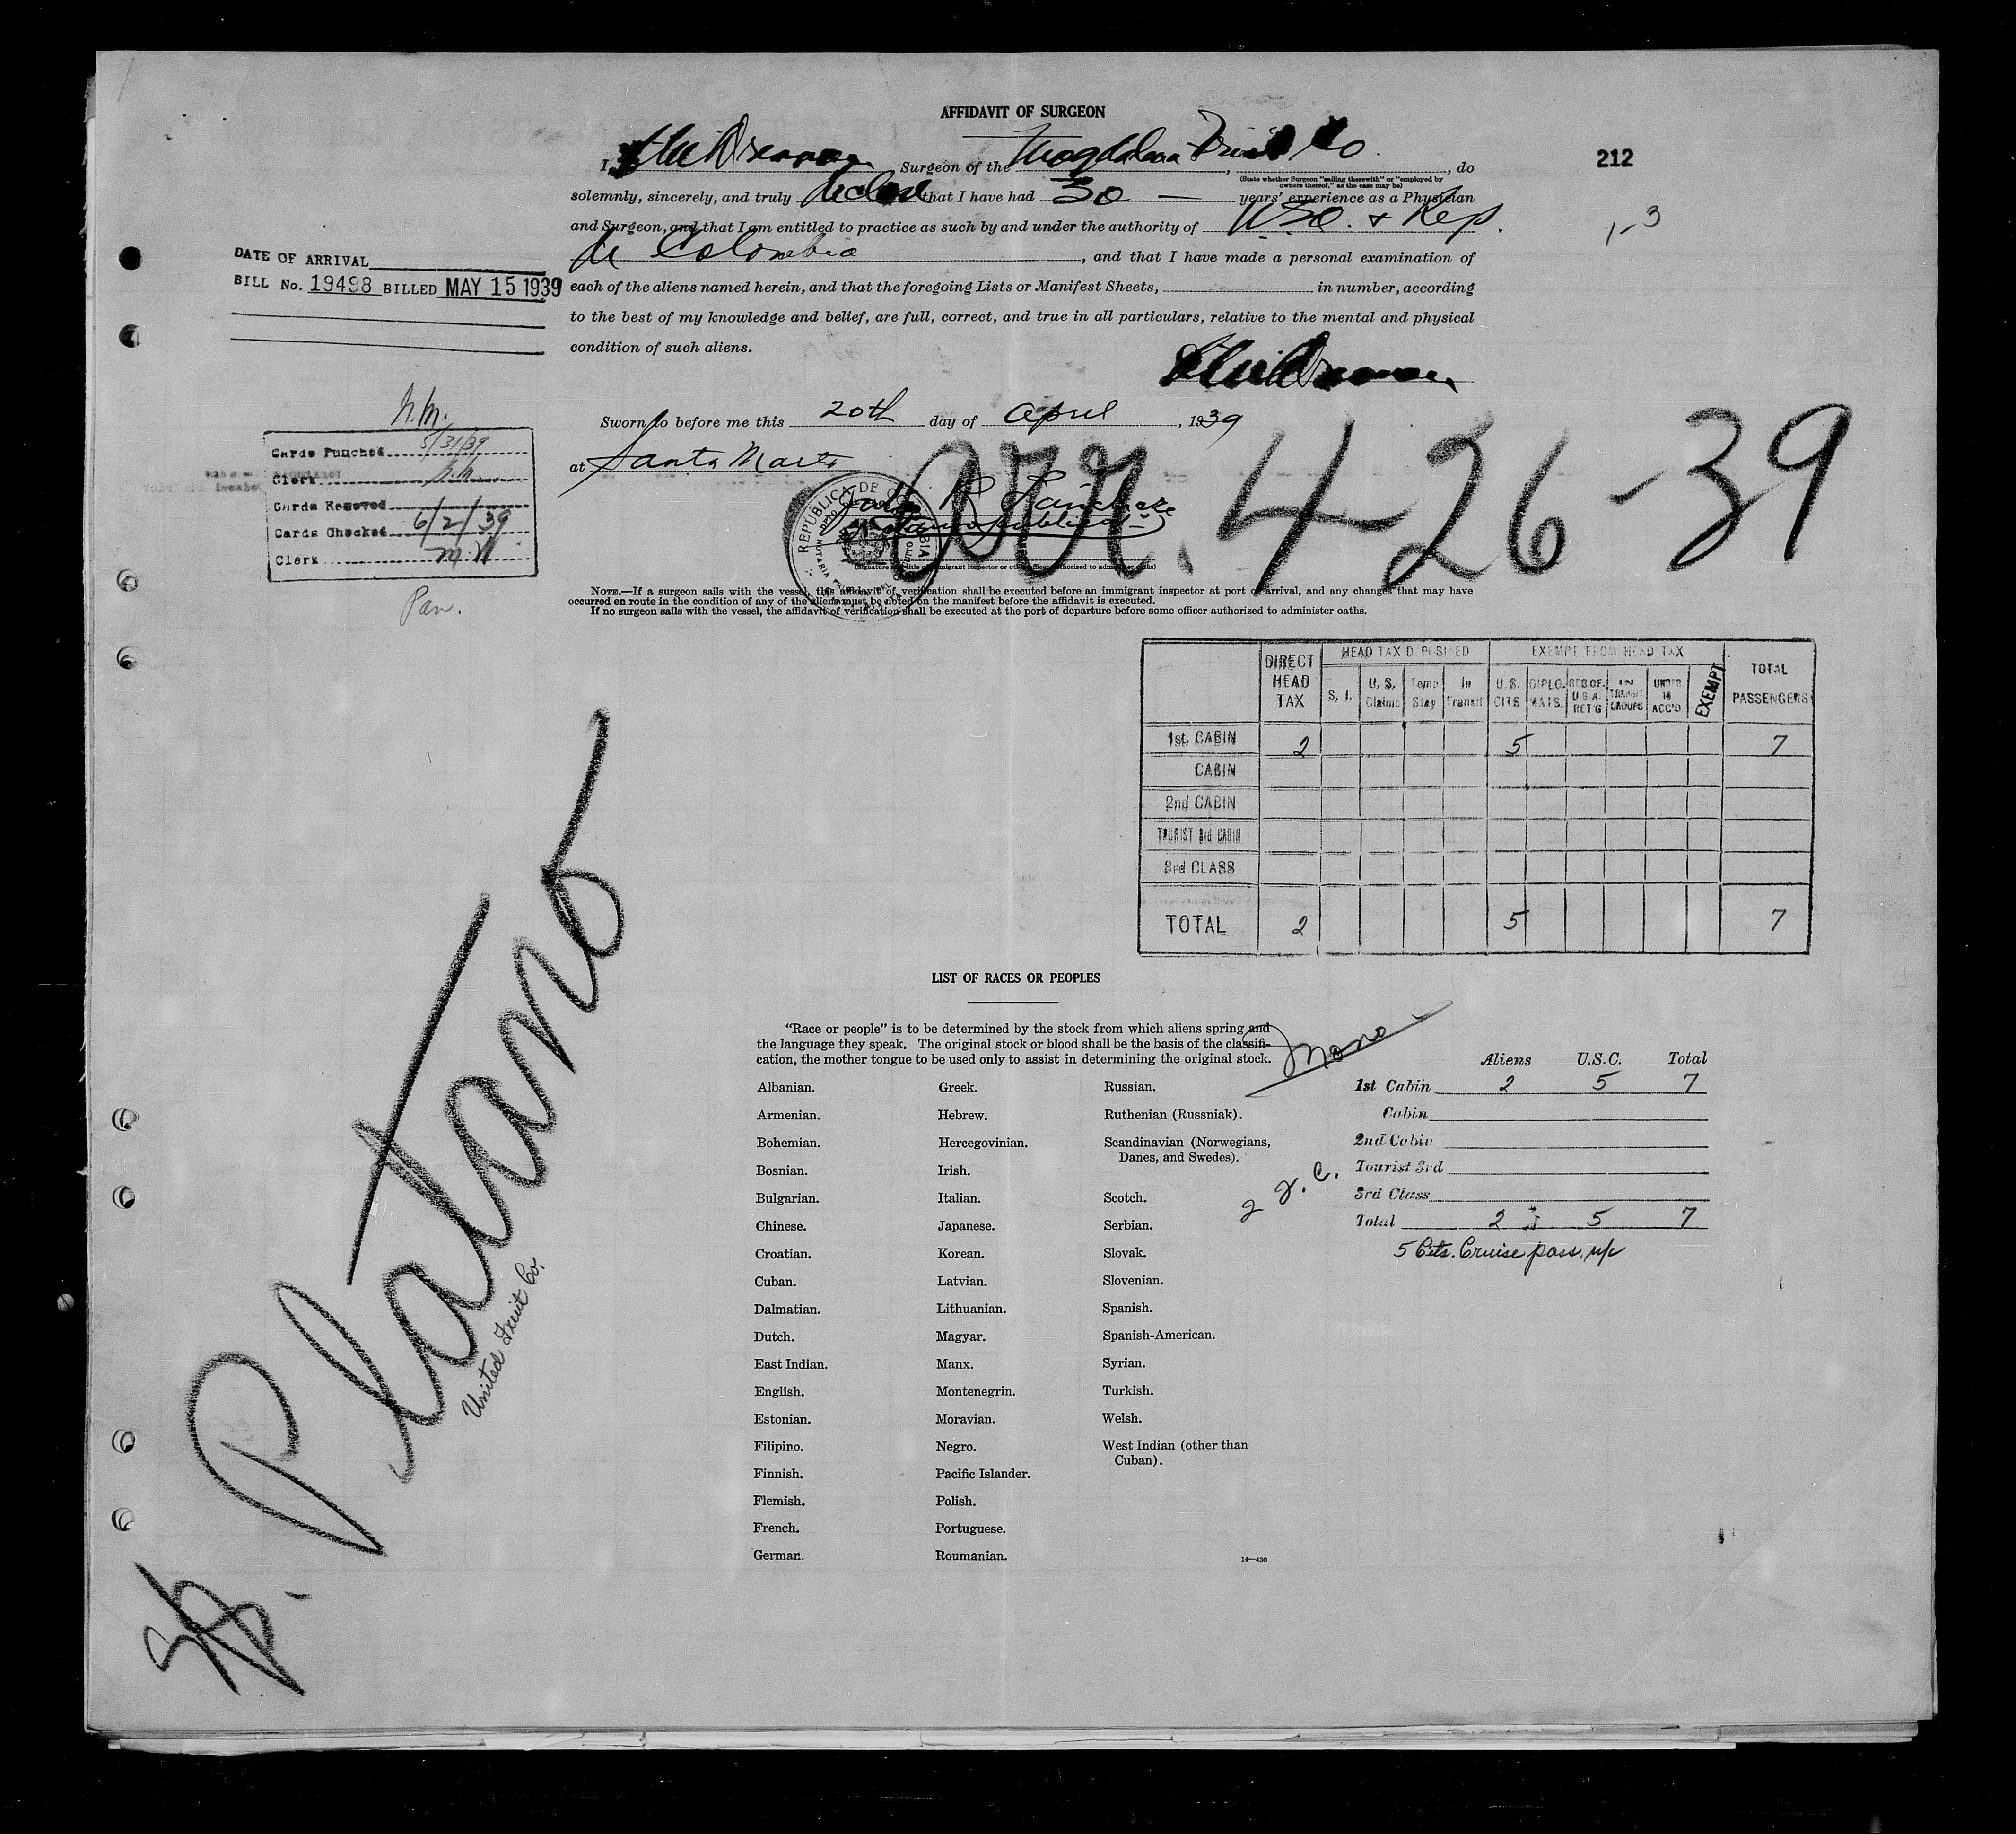 AFFIDAVIT OF SURGEON
212
I, Surgeon of the Magdalena Fruit Co., do
(State whether Surgeon "sailing therewith" or "employed by
owners thereof," as the case may be)
solemnly, sincerely, and truly that I have had 30 — years' experience as a Physician
and Surgeon, and that I am entitled to practice as such by and under the authority of & Rep.
Colombia, and that I have made a personal examination of
1-3
DATE OF ARRIVAL
BILL No. 19498 BILLED MAY 15 1939
each of the aliens named herein, and that the foregoing Lists or Manifest Sheets, in number, according
to the best of my knowledge and belief, are full, correct, and true in all particulars, relative to the mental and physical
condition of such aliens.
Sworn to before me this 20th day of April, 1939
at Santa Marta
Arr. 4-26-39
Sanchez
REPUBLICA DE COLOMBIA
N.M.
Cards Punched 5/31/39
Clerk
Cards Removed
Cards Checked 6/2/39
Clerk
Pan.
NOTE.—If a surgeon sails with the vessel, this affidavit of verification shall be executed before an immigrant inspector at port of arrival, and any changes that may have
occurred en route in the condition of any of the aliens must be noted on the manifest before the affidavit is executed.
If no surgeon sails with the vessel, the affidavit of verification shall be executed at the port of departure before some officer authorized to administer oaths.
DIRECT HEAD TAX
HEAD TAX DEPOSITED
EXEMPT FROM HEAD TAX
TOTAL PASSENGERS
S. I.
U. S. Claims
Temp Stay
In Transit
U.S. CITS
DIPLO. MATS.
RES OF. U S A. RET'G
TRANSIT GROUPS
UNDER 16 ACC'D
EXEMPT
1st. CABIN 2 5 7
CABIN
2nd CABIN
TOURIST 3rd CABIN
3rd CLASS
TOTAL 2 5 7
SS. Platano
United Fruit Co.
LIST OF RACES OR PEOPLES
"Race or people" is to be determined by the stock from which aliens spring and
the language they speak. The original stock or blood shall be the basis of the classifi-
cation, the mother tongue to be used only to assist in determining the original stock.
Albanian.
Armenian.
Bohemian.
Bosnian.
Bulgarian.
Chinese.
Croatian.
Cuban.
Dalmatian.
Dutch.
East Indian.
English.
Estonian.
Filipino.
Finnish.
Flemish.
French.
German.
Greek.
Hebrew.
Hercegovinian.
Irish.
Italian.
Japanese.
Korean.
Latvian.
Lithuanian.
Magyar.
Manx.
Montenegrin.
Moravian.
Negro.
Pacific Islander.
Polish.
Portuguese.
Roumanian.
Russian.
Ruthenian (Russniak).
Scandinavian (Norwegians,
Danes, and Swedes).
Scotch.
Serbian.
Slovak.
Slovenian.
Spanish.
Spanish-American.
Syrian.
Turkish.
Welsh.
West Indian (other than
Cuban).
14—430
Aliens U.S.C. Total
1st Cabin 2 5 7
Cabin
2nd Cabin
Tourist 3rd
3rd Class
Total 2 5 7
5 Cits. Cruise pass.